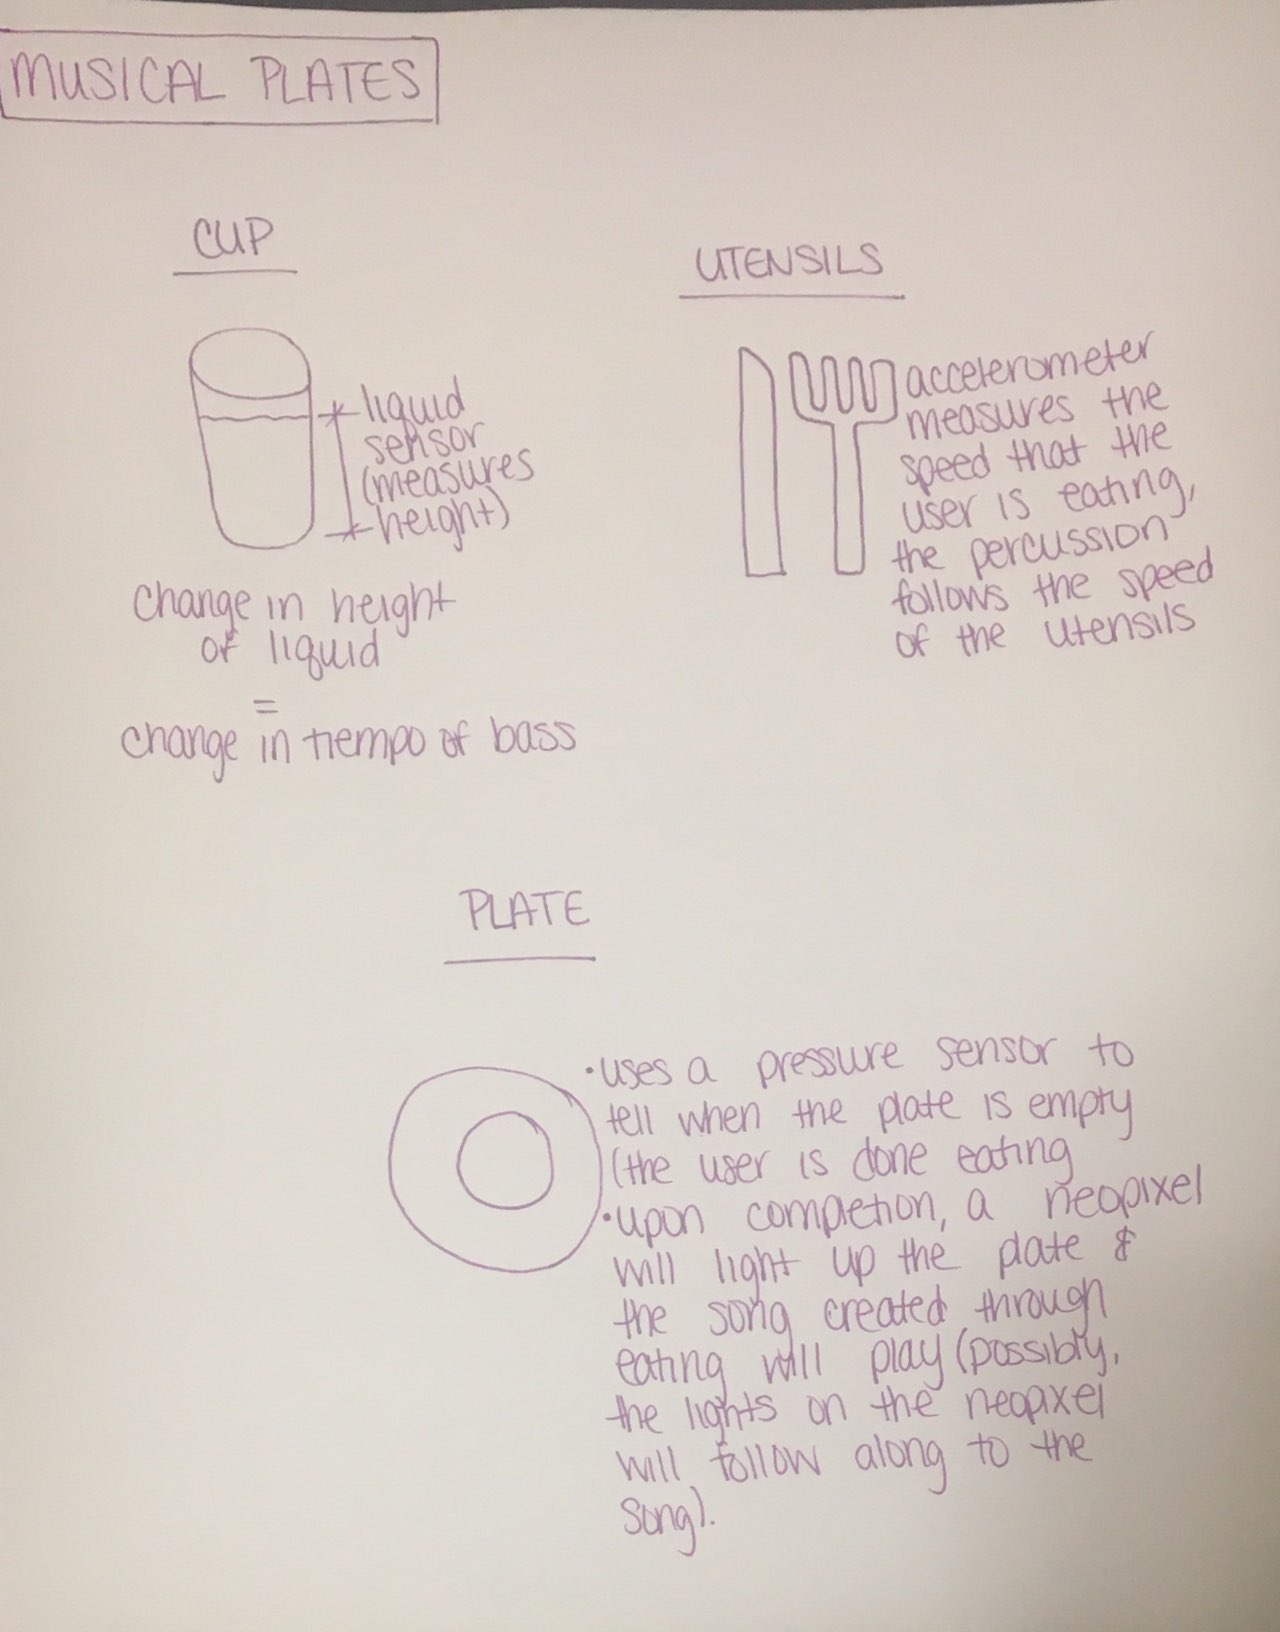 MUSICAL PLATES
CUP
liquid
sensor
(measures
height)
change in height
of liquid
=
change in tiempo of bass
UTENSILS
accelerometer
measures the
speed that the
user is eating,
the percussion
follows the speed
of the utensils
PLATE
• uses a pressure sensor to
tell when the plate is empty
(the user is done eating
• upon completion, a neopixel
will light up the plate &
the song created through
eating will play (possibly,
the lights on the neopixel
will follow along to the
song).